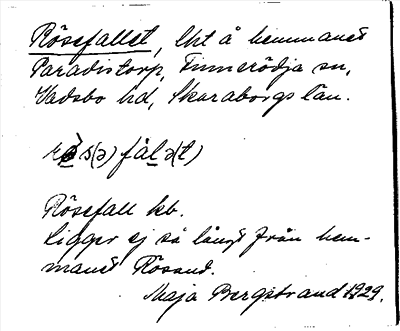 Rösefallet, lht å hemmanet
Paradistorp, Finnerödja sn,
Vadsbo hd, Skaraborgs län.
s(ə) fàl ə(t)
Rösefall kb.
Ligger ej så långt från hem-
manet Rösund.
Maja Bergstrand 1929.